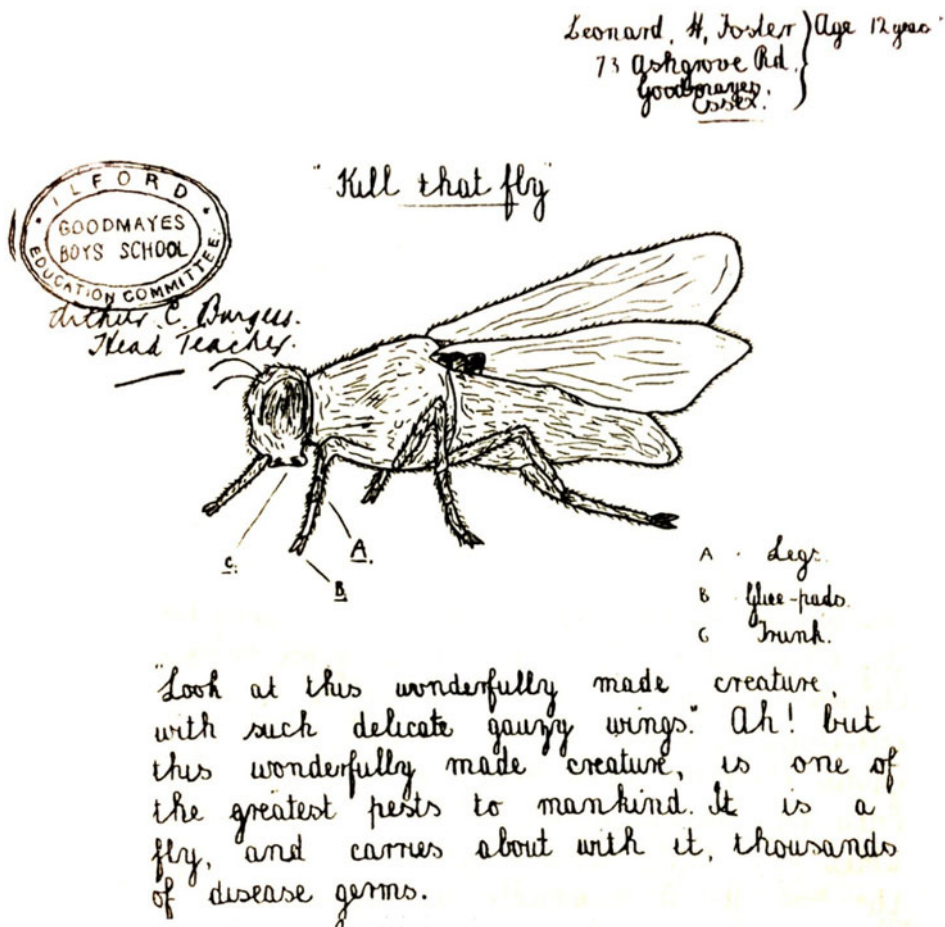 Leonard, H, Foster } Age 12 years
73 Ashgrove Rd.
Goodmayes.
Essex.
"Kill that fly"
ILFORD
GOODMAYES
BOYS SCHOOL
EDUCATION COMMITTEE
Arthur. C. Burgess.
Head Teacher.
C.
A.
B.
A . Legs.
B Glue-pads.
C Trunk.
"Look at this wonderfully made creature,
with such delicate gauzy wings." Ah! but
this wonderfully made creature, is one of
the greatest pests to mankind. It is a
fly, and carries about with it, thousands
of disease germs.